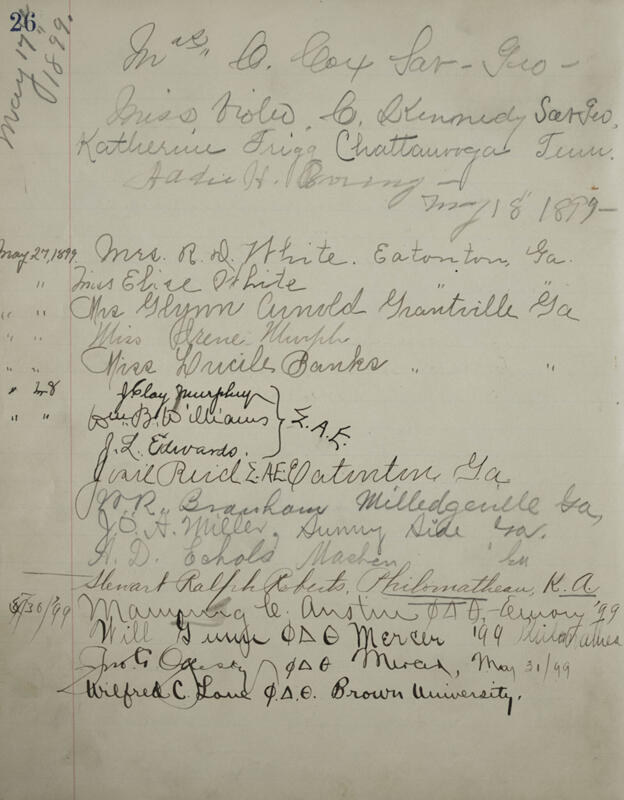 26
May 17th 1899.
Mrs C. Cox Sav - Geo -
Miss Violet C. Kennedy Sav Geo,
Katherine Trigg Chattanooga Tenn.
Addie H.
May 18" 1899 -
May 27, 1899. Mrs. R. D. White. Eatonton, Ga.
" Miss Elise White " "
" " Mrs Glynn Arnold Grantville Ga
" " Miss Irene Murph
" " Miss Lucile Banks " "
" 28 J. Clay Murphey
" " B. Williams Σ. A. E.
J. L. Edwards.
Reid Σ. A.E. Eatonton Ga
W. R. Branham Milledgeville Ga,
J. O. A. Miller, Sunny Side Ga.
H. D. Echols
Stewart Ralph Roberts, Philomathean, K. A.
5/30/'99 C. Austin Φ Δ Θ - Emory '99
Will Gunn Φ Δ Θ Mercer '99
Φ Δ Θ Mercer, May 31/99
Wilfred C. Lane Φ. Δ. Θ. Brown University.